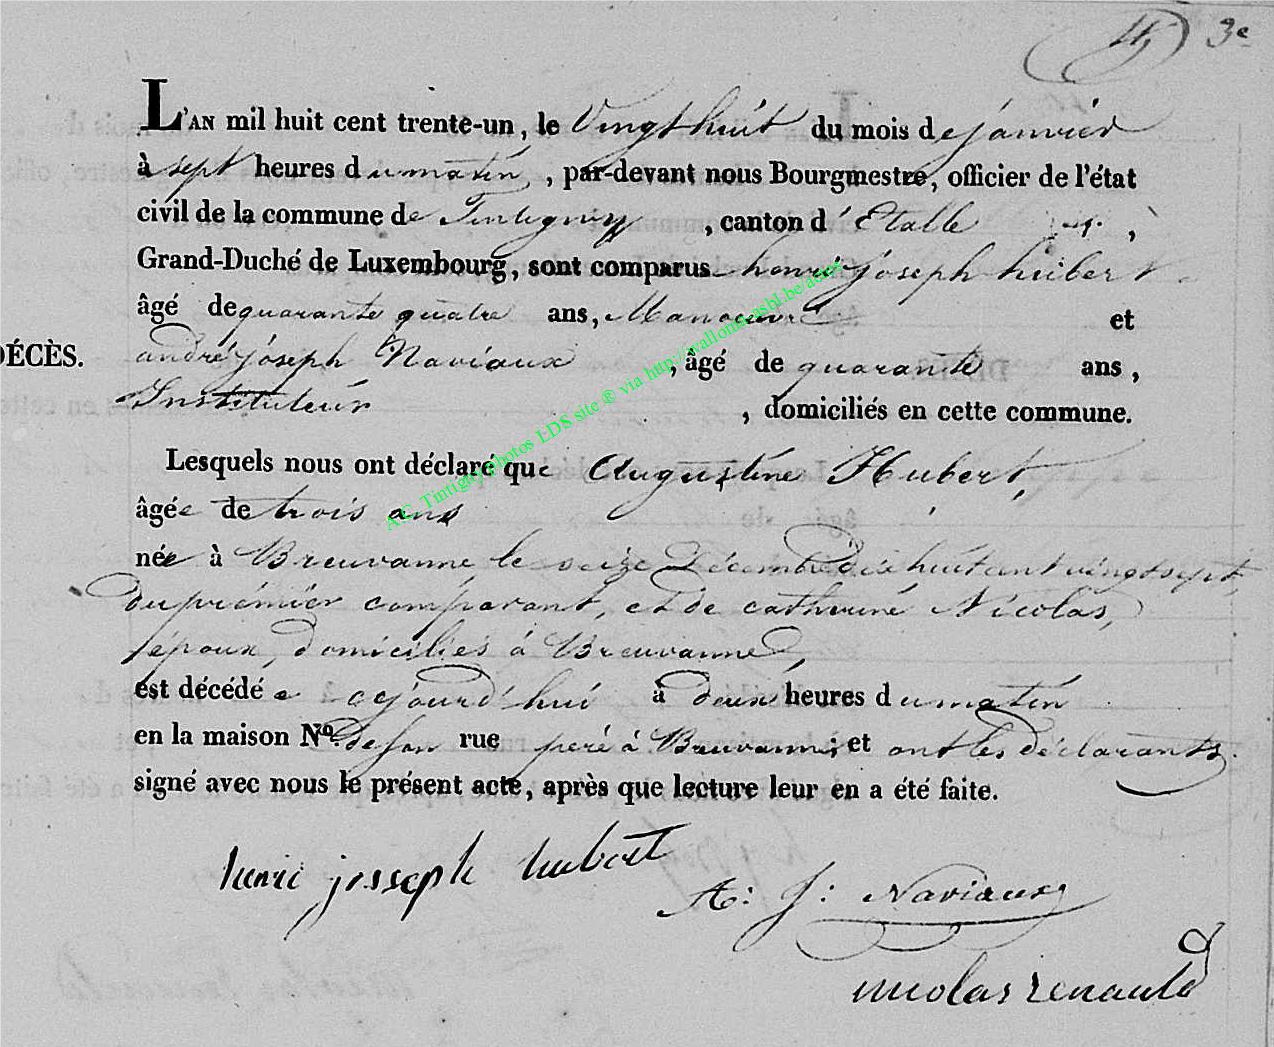 3e
L'AN mil huit cent trente-un, le Vingt huit du mois de janvier
à sept heures du matin, par-devant nous Bourgmestre, officier de l'état
civil de la commune de Tintigny, canton d'Etalle,
Grand-Duché de Luxembourg, sont comparus henri joseph hubert
âgé de quarante quatre ans, Manoeuvre et
DÉCÈS. andré joseph Naviaux, âgé de quarante ans,
Instituteur, domiciliés en cette commune.
Lesquels nous ont déclaré que Augustine Hubert,
âgée de trois ans
née à Breuvanne le seize Décembre dix huit cent vingt sept,
du prémier comparant, et de catherine Nicolas,
époux, domiciliés à Breuvanne,
est décédée aujourd'hui à deux heures du matin
en la maison No. de son rue pere à Breuvanne; et ont les déclarants
signé avec nous le présent acte, après que lecture leur en a été faite.
henri josseph hubert
A: J: Naviaux
nicolas renauld
A.C. Tintigny photos LDS site ® via http://wallonia-asbl.be/actes